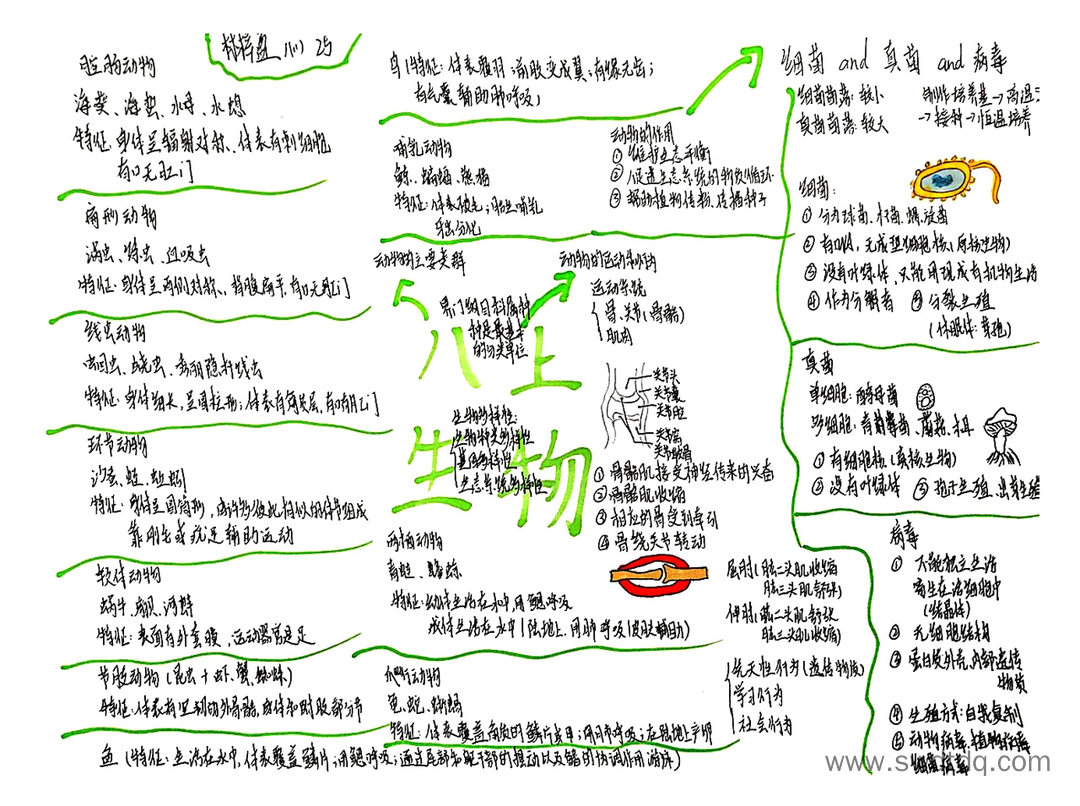 腔肠动物
海葵、海蜇、水母、水螅
特征：身体呈辐射对称、体表有刺细胞
有口无肛门
扁形动物
涡虫、绦虫、血吸虫
特征：身体呈两侧对称、背腹扁平，有口无肛门
线虫动物
蛔虫、蛲虫、秀丽隐杆线虫
特征：身体细长，呈圆柱形；体表有角质层，有口有肛门
环节动物
沙蚕、蛭、蚯蚓
特征：身体呈圆筒形，由许多彼此相似的体节组成
靠刚毛或疣足辅助运动
软体动物
蜗牛、河蚌
特征：表面有外套膜，运动器官是足
节肢动物（昆虫+虾、蟹、蜘蛛）
特征：体表有坚韧的外骨骼，身体和附肢都分节
鱼（特征：生活在水中，体表覆盖鳞片；用鳃呼吸；通过尾部和躯干部的摆动以及鳍的协调作用游泳）
鸟（特征：体表覆羽；前肢变成翼；有喙无齿；
有气囊辅助肺呼吸）
哺乳动物
鲸、蝙蝠、熊猫
特征：体表被毛；胎生哺乳
牙齿分化
动物的作用
① 维护生态平衡
② 促进生态系统的物质循环
③ 帮助植物传粉、传播种子
动物的主要类群
动物的运动和行为
界门纲目科属种
种是最基本
的分类单位
八上
生物
生物多样性：
生物种类多样性
基因多样性
生态系统多样性
运动系统
骨、关节（骨骼）
肌肉
关节头
关节囊
关节腔
关节窝
关节软骨
① 骨骼肌接受神经传来的兴奋
② 骨骼肌收缩
③ 相应的骨受到牵动
④ 骨绕关节转动
屈肘（肱二头肌收缩
肱三头肌舒张）
伸肘（肱二头肌舒张
肱三头肌收缩）
先天性行为（遗传物质）
学习行为
社会行为
两栖动物
青蛙、蟾蜍
特征：幼体生活在水中，用鳃呼吸
成体生活在水中（陆地上，用肺呼吸（皮肤辅助）
爬行动物
龟、蛇、蜥蜴
特征：体表覆盖角质的鳞片或甲；用肺呼吸；在陆地上产卵
细菌 and 真菌 and 病毒
细菌菌落：较小
真菌菌落：较大
制作培养基→高温
→接种→恒温培养
细菌：
① 分为球菌、杆菌、螺旋菌
② 有DNA，无成型细胞核（原核生物）
③ 没有叶绿体，只能用现成有机物生活
④ 作为分解者 ⑤ 分裂生殖
（休眠体：芽孢）
真菌
单细胞：酵母菌
多细胞：青霉菌、蘑菇、木耳
① 有细胞核（真核生物）
② 没有叶绿体 ③ 孢子生殖，出芽生殖
病毒
① 不能独立生活
寄生在活细胞中
（结晶体）
② 无细胞结构
③ 蛋白质外壳，内部遗传
物质
④ 生殖方式：自我复制
⑤ 动物病毒，植物病毒
细菌病毒